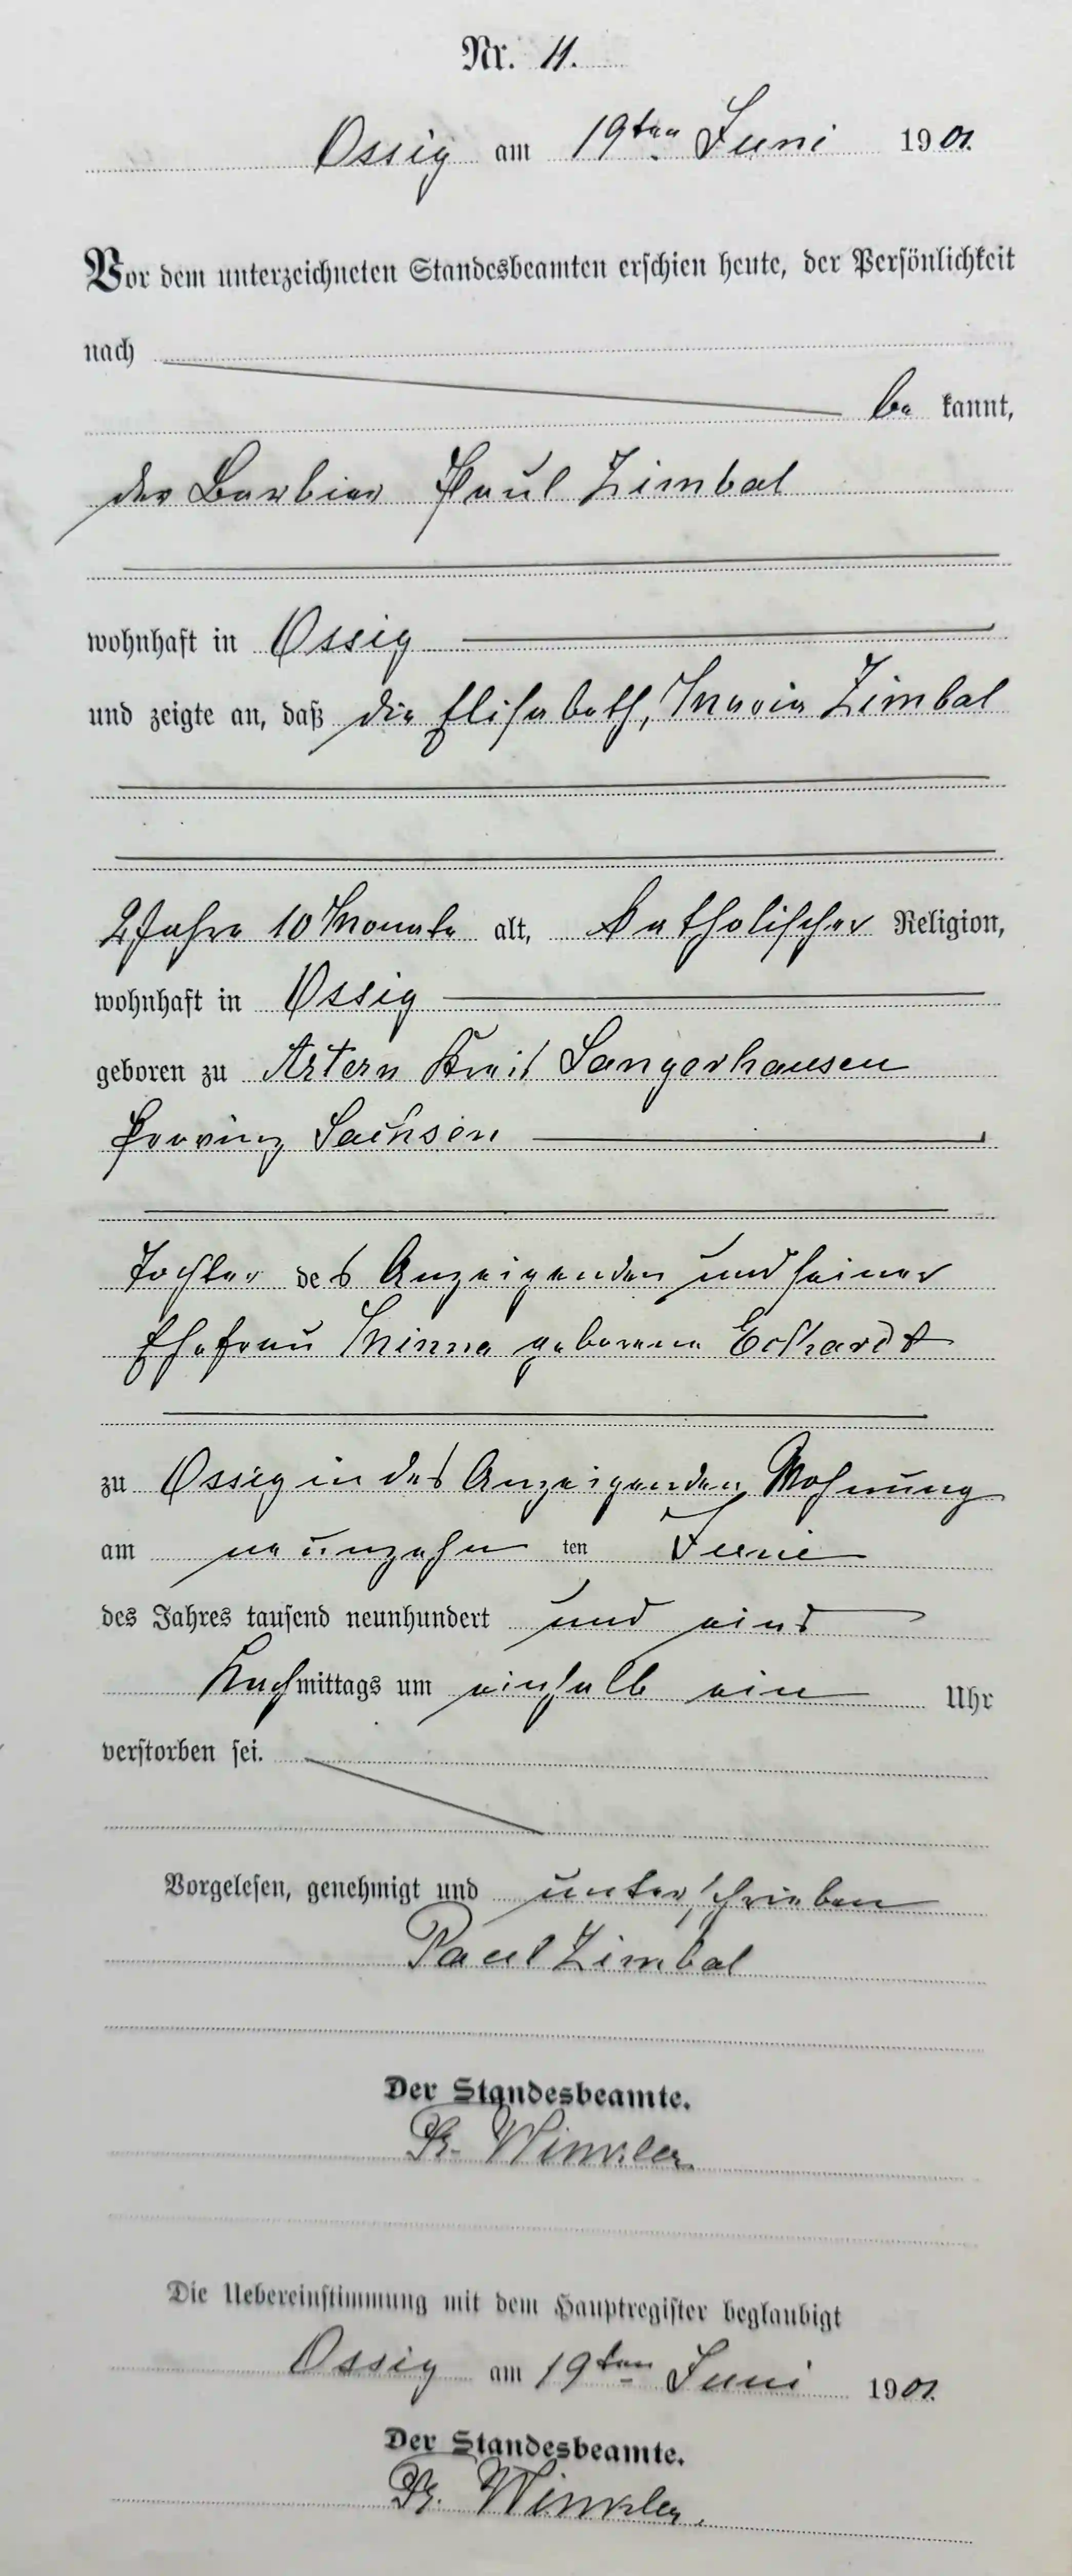 Nr. 11.
Ossig am 19ten Juni 1901.
Vor dem unterzeichneten Standesbeamten erschien heute, der Persönlichkeit
nach
be kannt,
der Barbier Paul Zimbal
wohnhaft in Ossig
und zeigte an, daß die Elisabeth, Maria Zimbal
2 Jahre 10 Monate alt, katholischer Religion,
wohnhaft in Ossig
geboren zu Artern Kreis Sangerhausen
Provinz Sachsen
Tochter des Anzeigenden und seiner
Ehefrau Minna geborene Eckardt
zu Ossig in des Anzeigenden Wohnung
am neunzehn ten Juni
des Jahres tausend neunhundert und eins
Nachmittags um einhalb ein Uhr
verstorben sei.
Vorgelesen, genehmigt und unterschrieben
Paul Zimbal
Der Standesbeamte.
Winkler
Die Uebereinstimmung mit dem Hauptregister beglaubigt
Ossig am 19ten Juni 1901.
Der Standesbeamte.
Winkler.